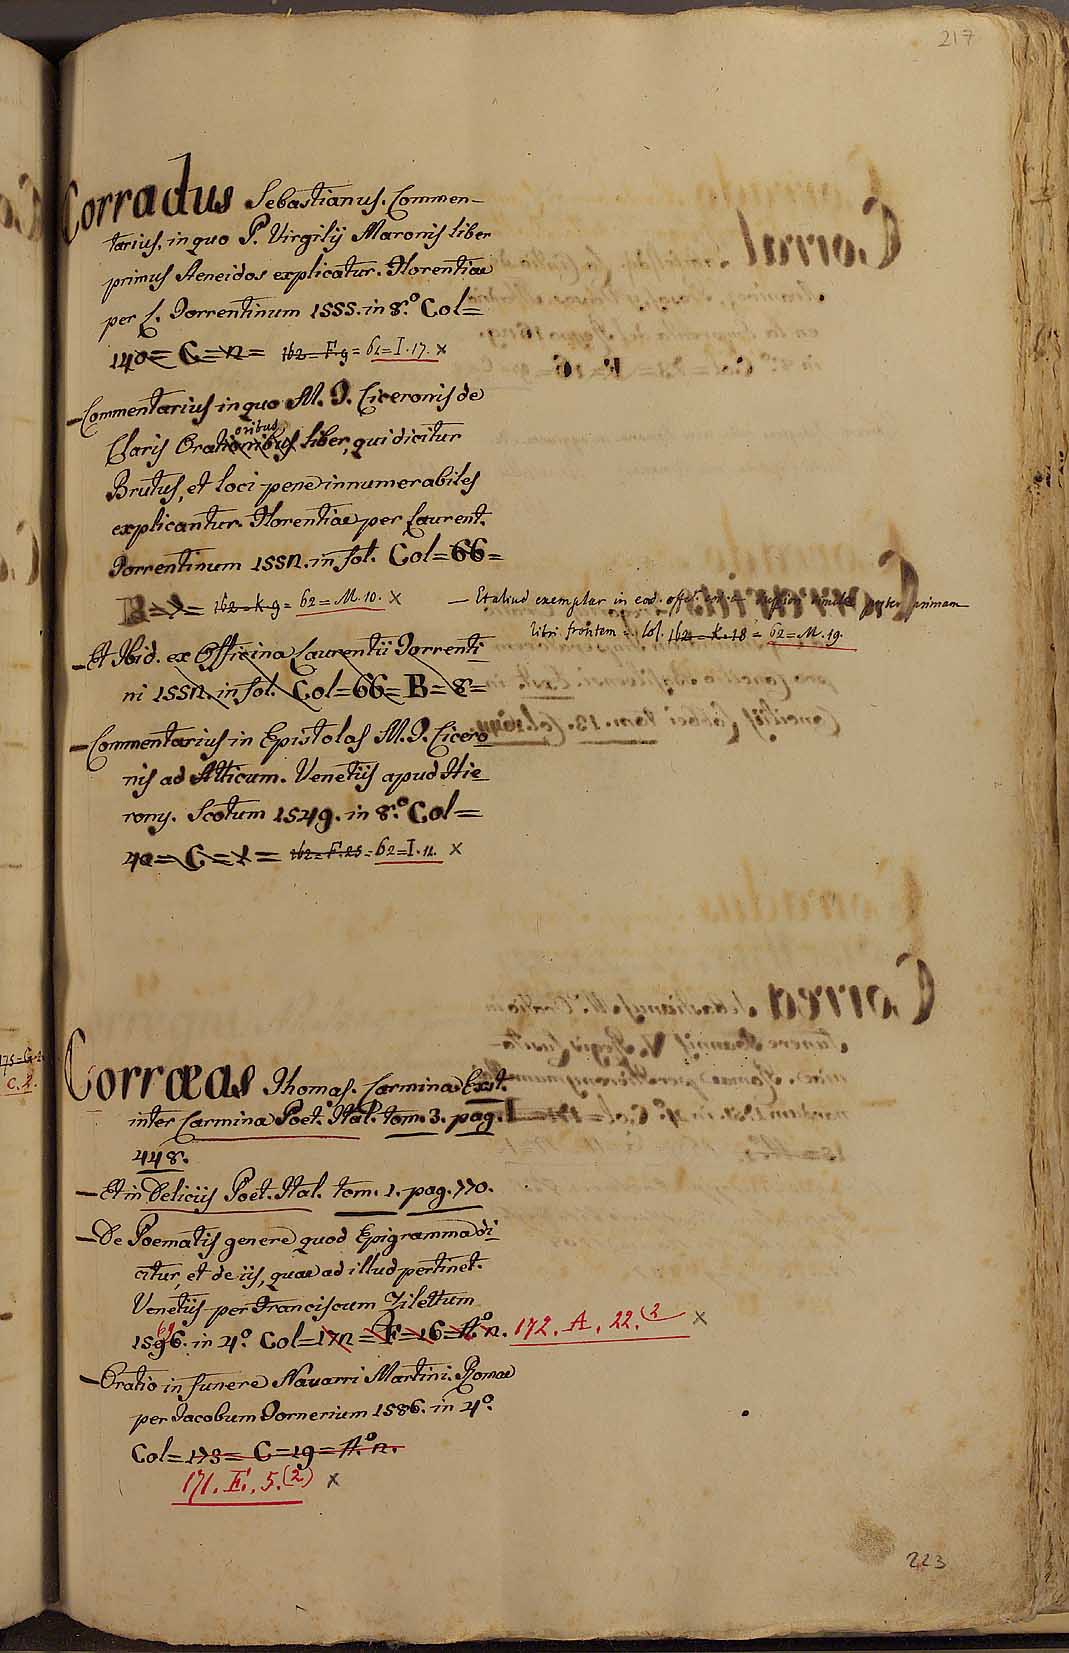 217
Corradus Sebastianus. Commen-
tarius, in quo P. Virgilij Maronis liber
primus Aeneidos explicatur. Florentiae
per L. Torrentinum 1555. in 8.º Col=
140= C=n= 162=F.9= 62=I.17. x
—Commentarius in quo M. T. Ciceronis de
oribus
Claris Orationibus liber, qui dicitur
Brutus, et loci pene innumerabiles
explicantur. Florentiae per Laurent.
Torrentinum 1552. in fol. Col=66=
B= = 162=K.9= 62=M.10. x
— Et aliud exemplar in eod. primam
libri frontem = Col. 162=K.18= 62=M.19.
—Et Ibid. ex Officina Laurentii Torrenti-
ni 1552. in fol. Col=66=B=8=
—Commentarius in Epistolas M. T. Cicero-
nis ad Atticum. Venetiis apud Hie-
rony. Scotum 1549. in 8.º Col=
40=C=1= 162=F.25= 62=I.12. x
175=G.
C. 2.
Corræas Thomas. Carmina Exst.
inter Carmina Poet. Ital. tom. 3. pag.
448.
—Et in Deliciis Poet. Ital. tom. 1. pag. 770.
—De Poematis genere quod Epigramma di-
citur, et de iis, quae ad illud pertinet.
Venetiis per Franciscum Zilettum
69
1596. in 4.º Col=172=F=16=A.º n. 172. A. 22.(2 x
—Oratio in funere Nauarri Martini. Romae
per Jacobum Tornerium 1586. in 4.º
Col=173=C=19=A.º n.
171. E. 5.(2) x
223